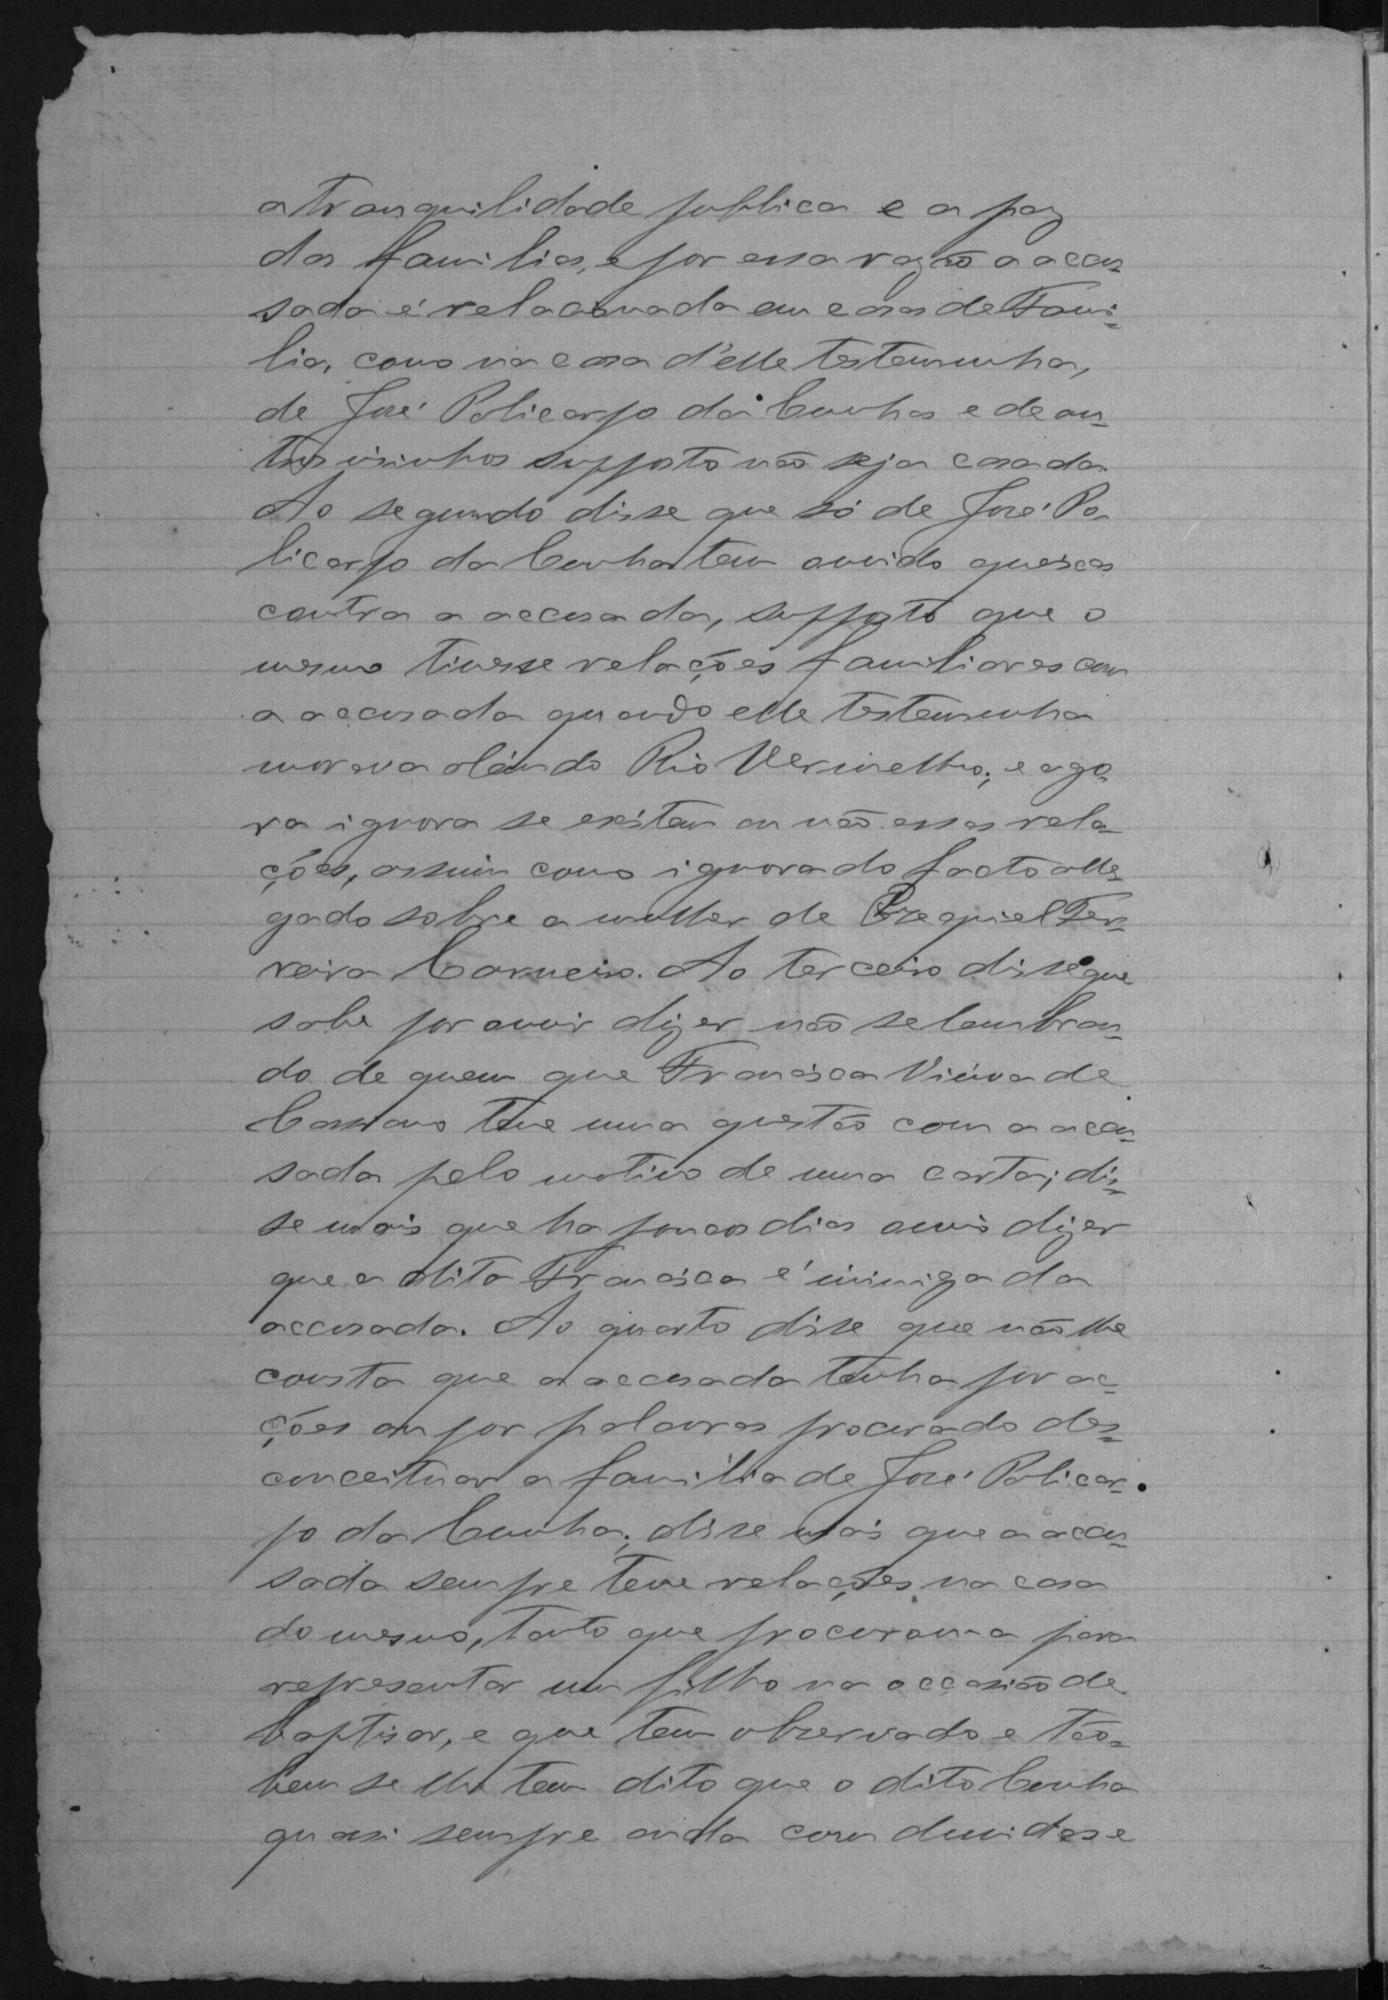 a tranquilidade publica e a paz
das familias, e por essa razão a accu-
sada é relacionada em casas de Fami-
lia, como na casa d'elle testemunha,
de José Policarpo da Cunha e de ou-
tros visinhos supposto não seja casada.
Ao segundo disse que só de José Po-
licarpo da Cunha tem ouvido queixas
contra a accusada, supposto que o
mesmo tivesse relações familiares com
a accusada quando elle testemunha
morava além do Rio Vermelho; e ago-
ra ignora se existem ou não essas rela-
ções, assim como ignora do facto alle-
gado sobre a mulher de Ezequiel Fer-
reira Carneiro. Ao terceiro disse que
sabe por ouvir dizer não se lembran-
do de quem que Francisca Viúva de
Cassiano teve uma questão com a accu-
sada pelo motivo de uma carta; dis-
se mais que ha poucos dias ouvio dizer
que a dita Francisca é inimiga da
accusada. Ao quarto disse que não lhe
consta que a accusada tenha por ac-
ções ou por palavras procurado des-
conceituar a familia de José Policar-
po da Cunha; disse mais que a accu-
sada sempre teve relações na casa
do mesmo, tanto que procurou-a para
representar um filho na occasião de
baptisar, e que tem observado e tão-
bem se lhe tem dito que o dito Cunha
quasi sempre anda com duvidas e